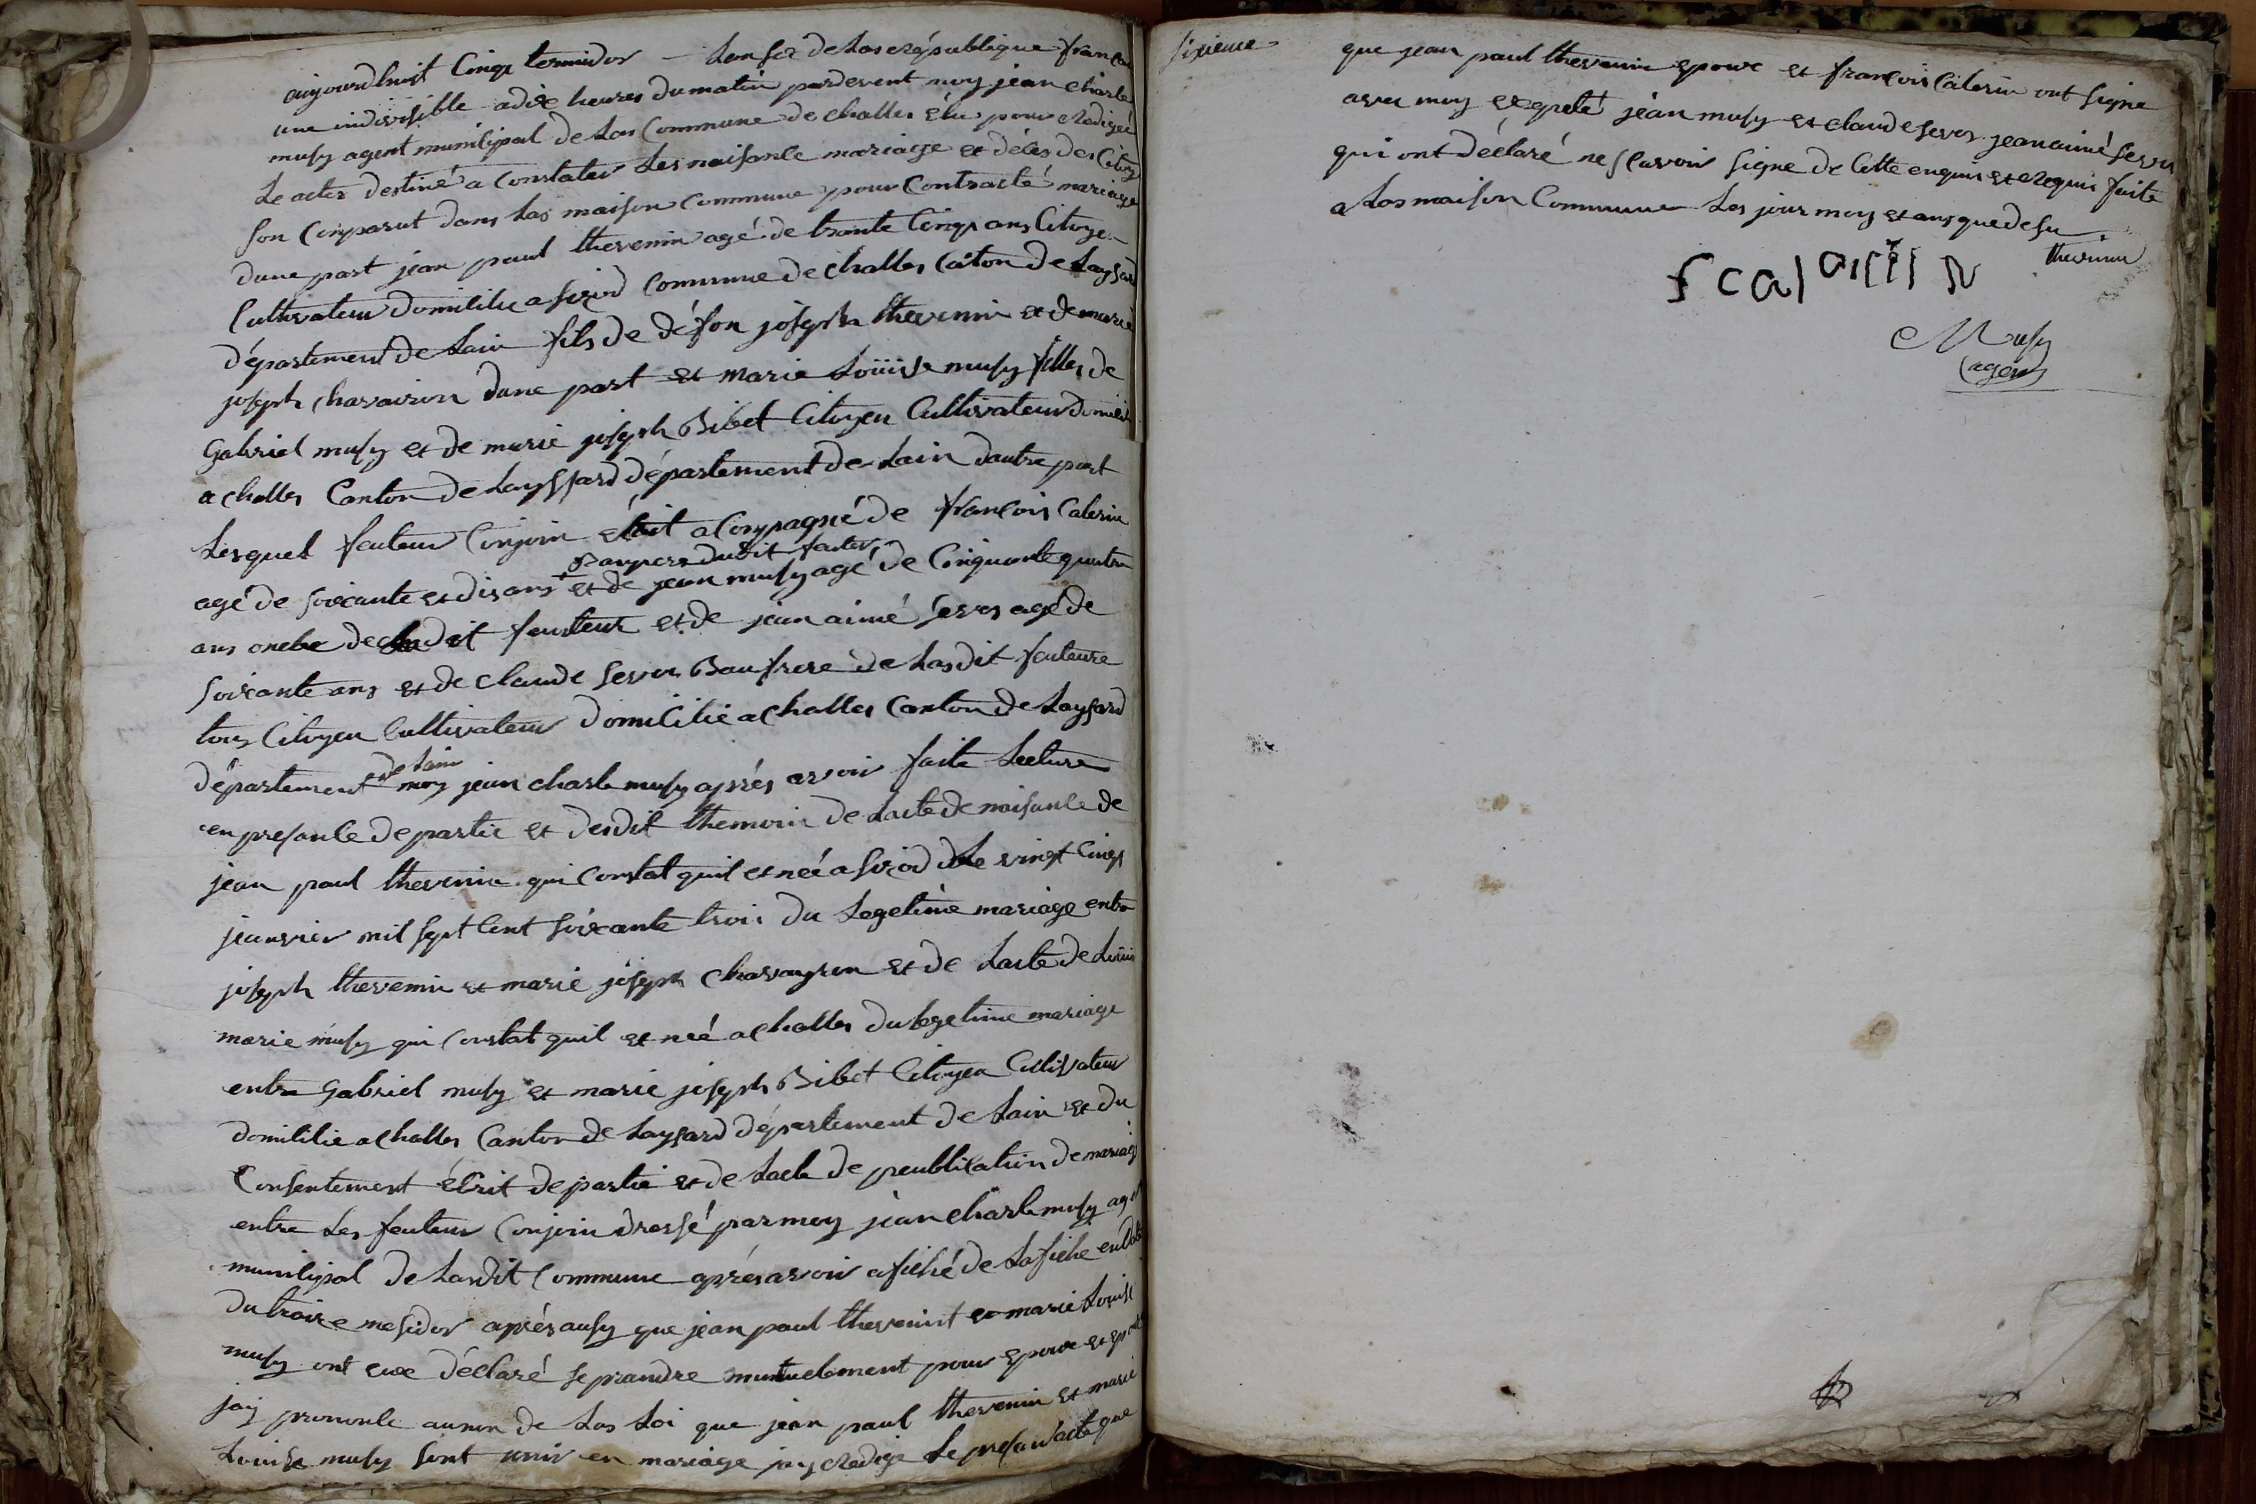 aujourdhuit Cinqt termidor – Lan six de Las republique franças
une indivisible adixe heures dumatin pardevent moy jean charle
musy agent municipal de Las Commune de challes élu pour redigée
Le acter destiné a Constater Les naisance mariage et décés des Citoy
son Conparut dans Las maison Commune pour Contracté mariage
dune part jean paul thevenin agé de trante Cinqt ans Citoye
Cultivateur domicilie a sixiod Commune de challes Caton de Laysard
département de Lain fils de défon joseph thevenin et de marie
joseph charvairon dune part et marie Loüise musy filles de
Gabriel musy et de marie joseph Bibet Citoyen Cultivateur domicili
a challes Canton de Layssard département de Lain dautre part
Lesquel feuteur Conjoin était aConpagné de françois Caterin
Baupere dudit feuter
agé de soixante et dis ans + et de jean musy agé de Cinquante quatre
ans oncle de Ladit feuteur et de jean aimé servos agé de
soixante ans et de Claude servos Baufrere de Lasdit feuteure
tous Citoyen Cultivateur domicilié a challes Canton de Laysard
de Lain
département moy jean charle musy aprés avoir faite Lecture
en presance de partie et desdit themoin de Lacte de naisance de
jean paul thevenin qui Constat quil et neé a sixiod Le vingt Cinqt
jeanvier mil sept Cent soixante troi du Legetime mariage entre
joseph thevenin et marie joseph charvayron et de Lacte de Loüis
marie musy qui Constat quil et neé a challes du Legetime mariage
entre Gabriel musy et marie joseph Bibet Citoyen Cultivateur
domicilie a challes Canton de Laysard département de Lain et du
Consentement éCrit de partié et de Lacte de peublication de mariag
entre Les feuteur Conjoin dressé par moy jean charle musy ag
municipal de Lasdit Commune aprés avoir afiché de Lafiche en date
du traixe mesidor aprés ausy que jean paul thevenint et marie Louise
musy ont euxe déclaré se prandre mutuelement pour epoux et epous
jay prononcé au non de Las Loi que jean paul thevenin et marie
Louise musy sont unir en mariage jay redigé Le presant acte que
sixieme
que jean paul thevenin epoux et françois Caterin ont signe
avec moy exepeté jean musy et claude servos jean aimé servos
qui ont déclaré ne scavoir signe de Cette enquis et requis faite
a Las maison Commune Les jour moy et ans que desu
thevenin
f catarin
Musy
agent